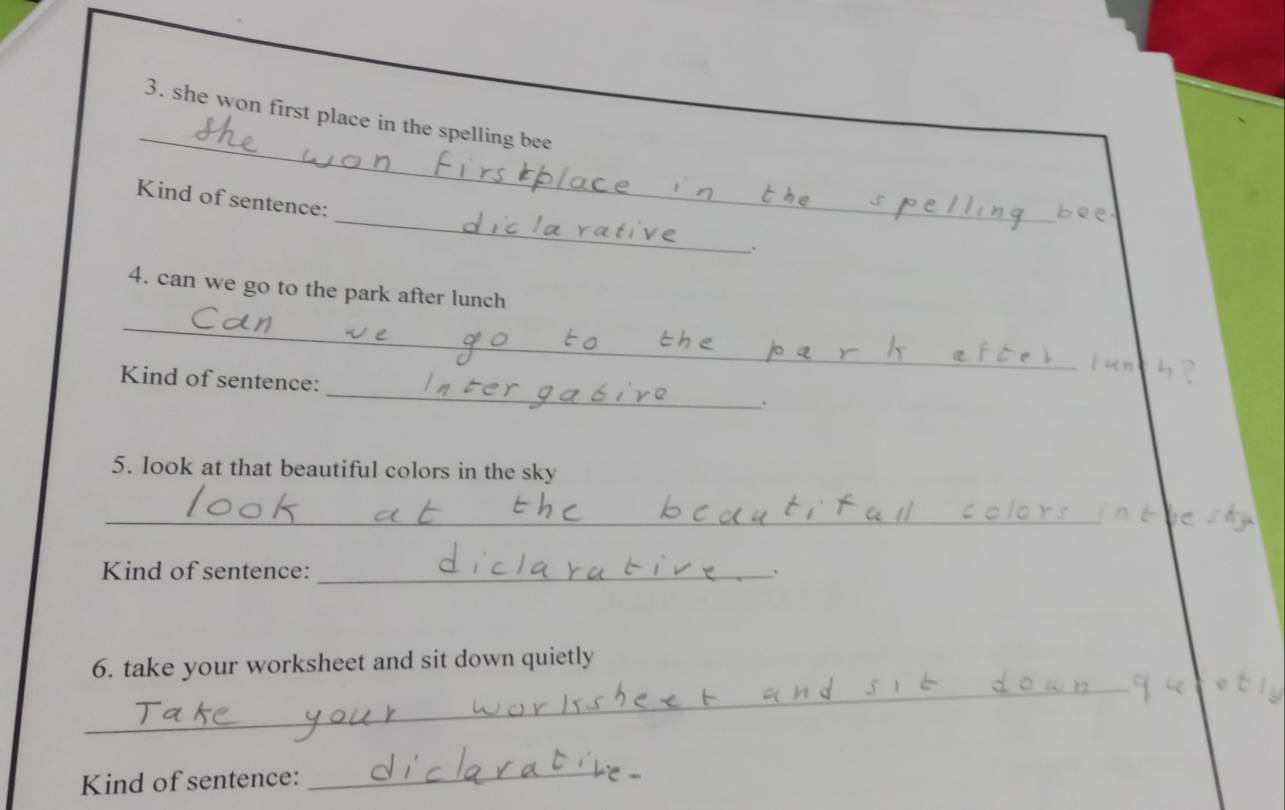 3. she won first place in the spelling bee
She won first place in the spelling bee.
Kind of sentence: diclarative.
4. can we go to the park after lunch
Can we go to the park after lunch?
Kind of sentence: Intergative.
5. look at that beautiful colors in the sky
look at the beautifall colors in the sky
Kind of sentence: diclarative.
6. take your worksheet and sit down quietly
Take your worksheet and sit down quietly
Kind of sentence: diclarative.